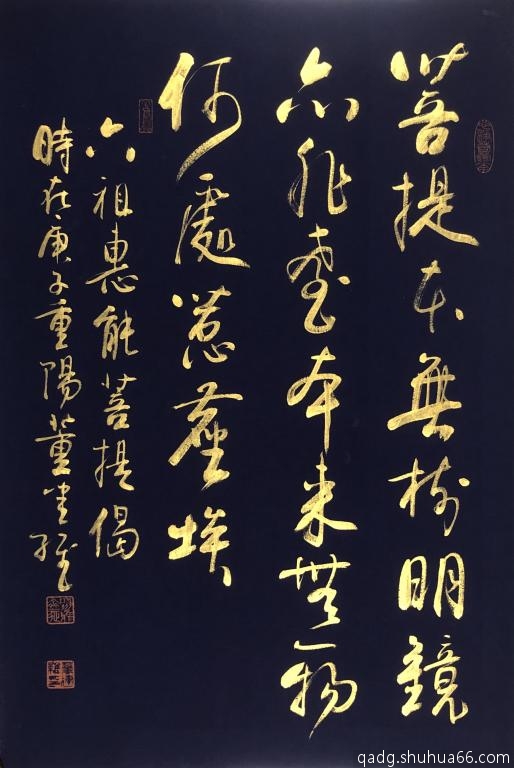 菩提本無樹明鏡
亦非臺本來無一物
何處惹塵埃
六祖惠能菩提偈
時在庚子重陽董堂經
qadg.shuhua66.com